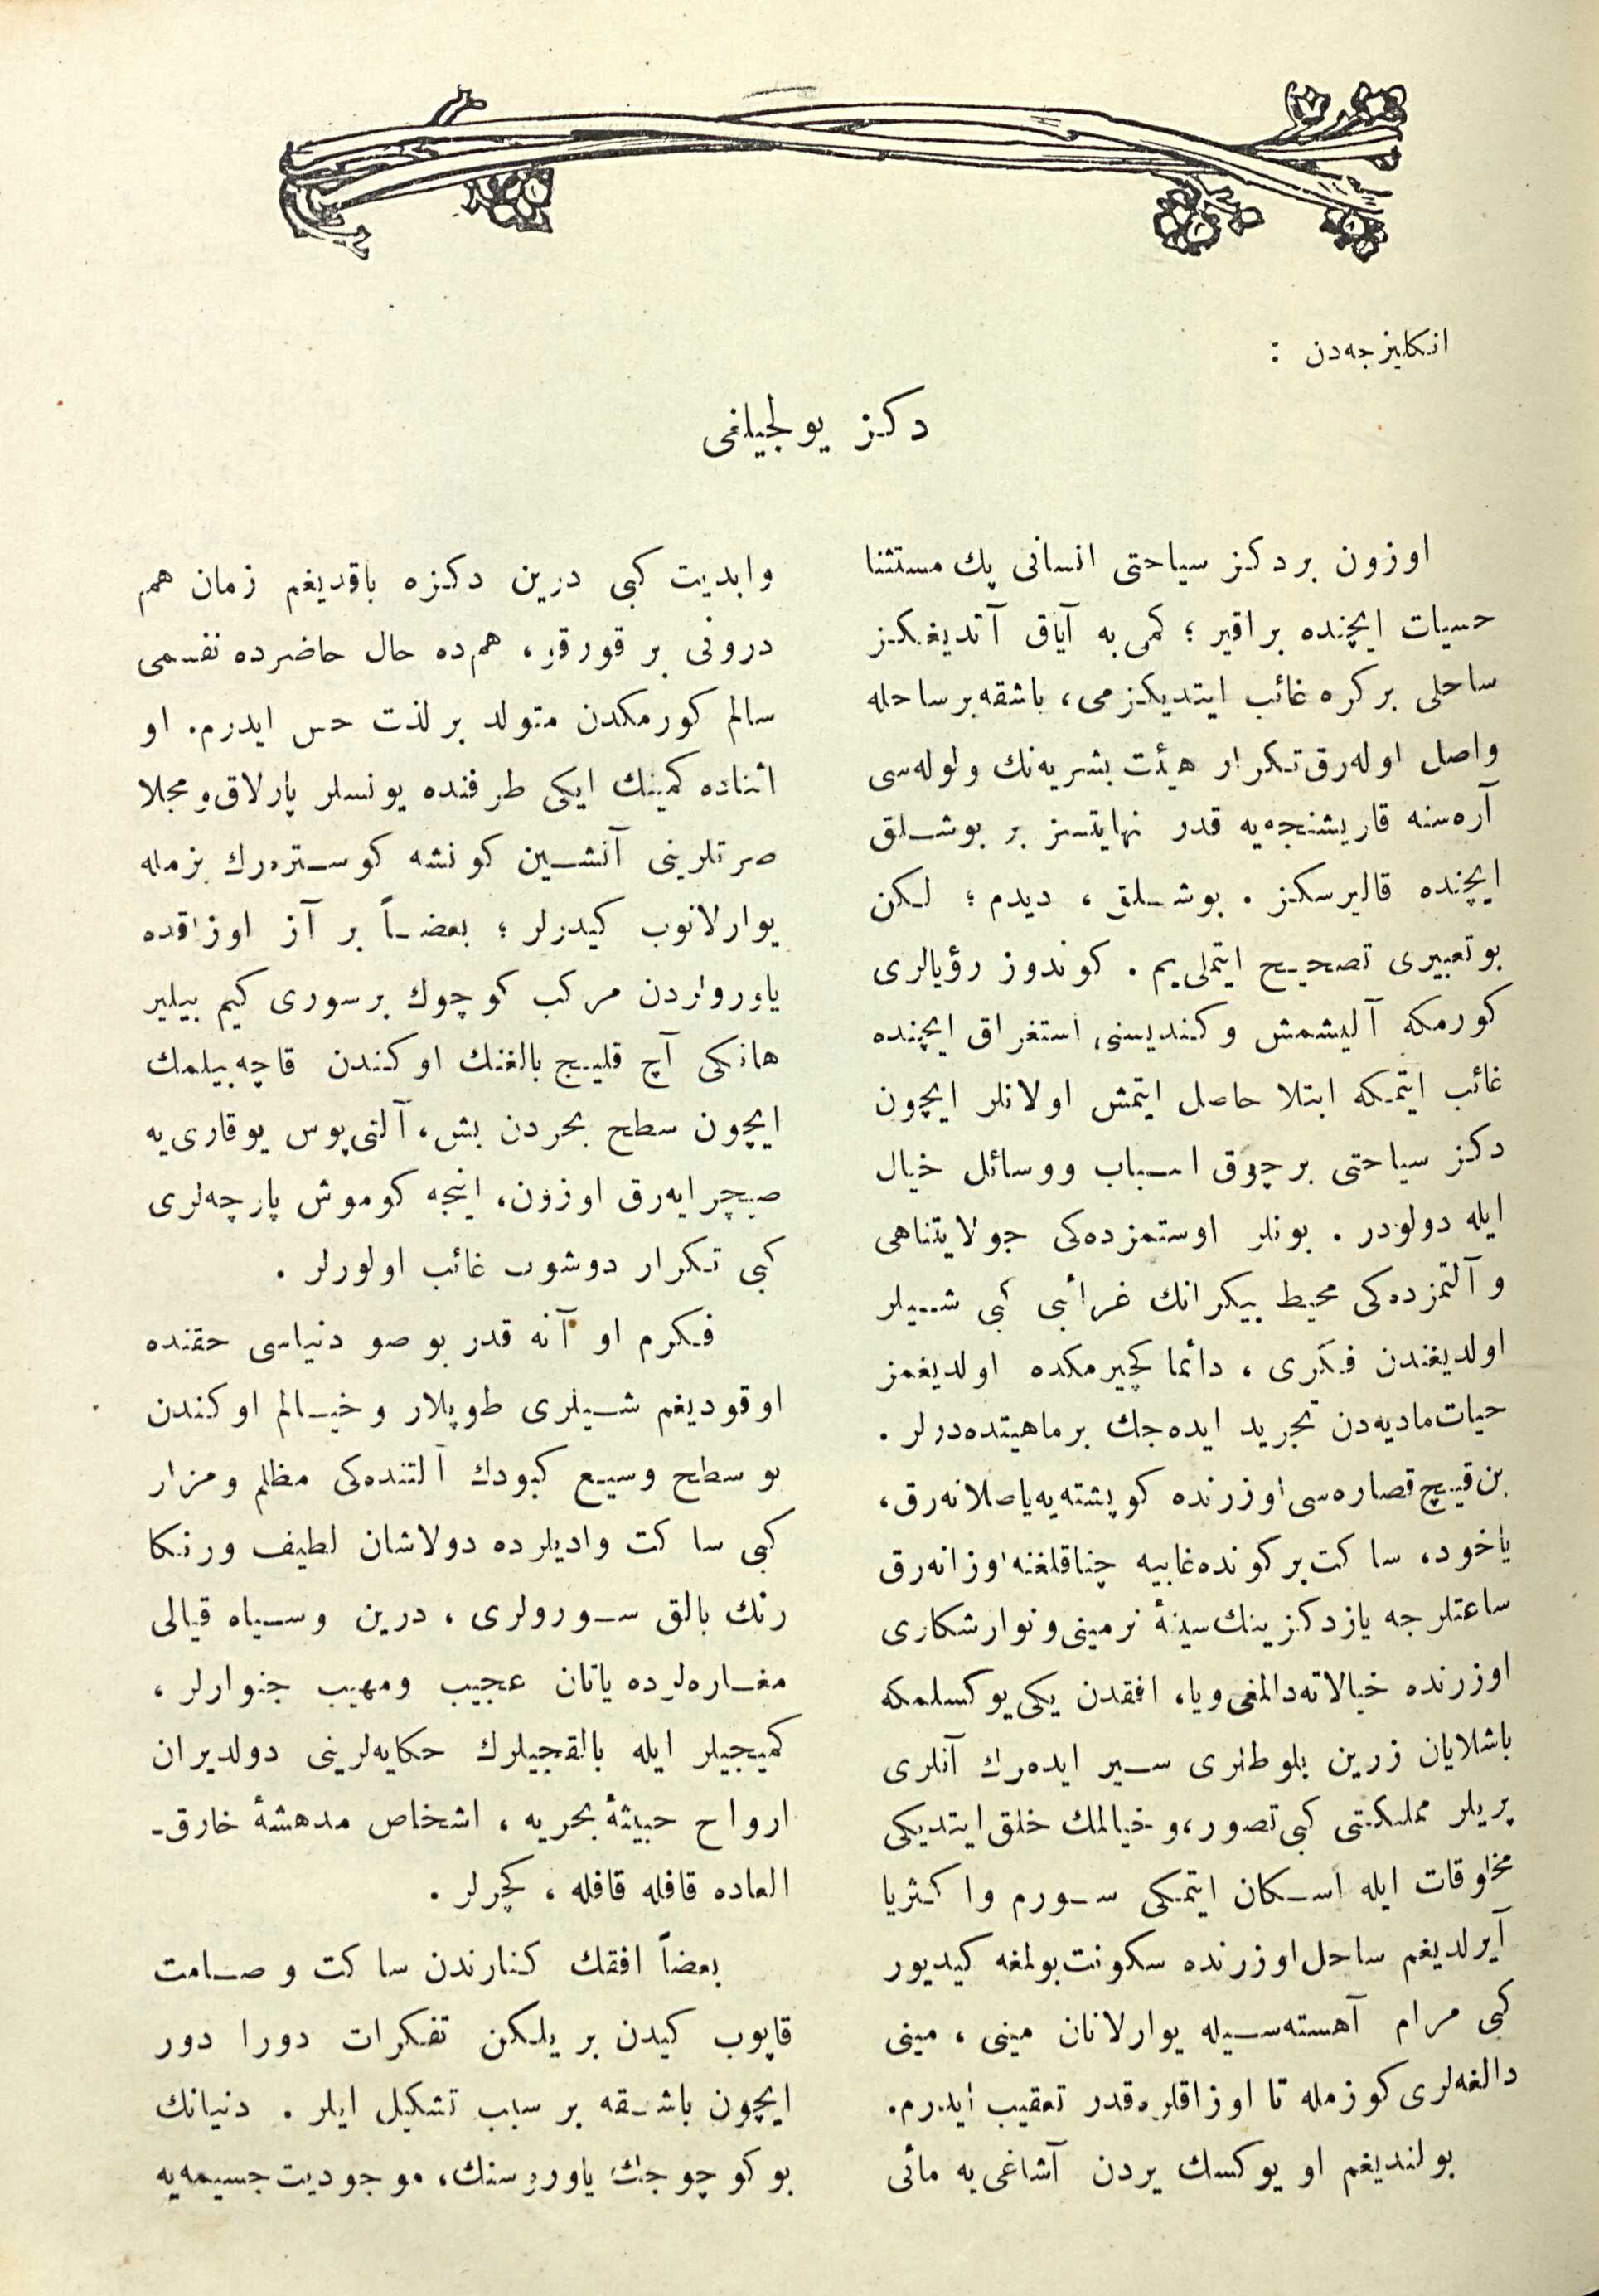 انكليزجه‌دن :
دكز يولجيلغی
اوزون بردكز سياحتی انسانی پك مستثنا
حسيات ايچنده براقير ؛ كمی‌به آياق آتديغكز
ساحلی بركره غائب ايتديكزمی، باشقه برساحله
واصل اوله‌رق تكرار هيئت بشريه‌نك ولوله‌سی
آره‌سنه قاريشنجه‌يه قدر نهايتسز بر بوشلق
ايچنده قاليرسكز . بوشلق ، ديدم ؛ لكن
بو تعبيری تصحيح ايتملی‌يم . كوندوز رؤيالری
كورمكه آليشمش و كنديسنی استغراق ايچنده
غائب ايتمكه ابتلا حاصل ايتمش اولانلر ايچون
دكز سياحتی برچوق اسباب ووسائل خيال
ايله دولودر . بونلر اوستمزده‌كی جو لايتناهی
و آلتمزده‌كی محيط بيكرانك غرائبی كبی شيلر
اولديغندن فكری ، دائما كچيرمكده اولديغمز
حيات ماديه‌دن تجريد ايده‌جك برماهيتده‌درلر .
بن قيچ قصاره‌سی اوزرنده كوپشته‌يه ياصلانه‌رق،
ياخود، ساكت بركونده غابيه چناقلغنه اوزانه‌رق
ساعتلرجه ياز دكزينك سينهٔ نرمينی و نوازشكاری
اوزرنده خيالاته دالمغی ويا، افقدن يكی يوكسلمكه
باشلايان زرين بلوطلری سير ايده‌رك آنلری
پريلر مملكتی كبی تصور، و خيالمك خلق ايتديكی
مخلوقات ايله اسكان ايتمكی سورم و اكثريا
آيرلديغم ساحل اوزرنده سكونت بولمغه كيديور
كبی مرام آهسته‌سيله يوارلانان مينی ، مينی
دالغه‌لری كوزمله تا اوزاقلره قدر تعقيب ايدرم.
بولنديغم او يوكسك يردن آشاغی يه مائی
وابديت كبی درين دكزه باقديغم زمان هم
درونی بر قورقو، هم‌ده حال حاضرده نفسمی
سالم كورمكدن متولد بر لذت حس ايدرم. او
اثناده كمينك ايكی طرفنده يونسلر پارلاق و مجلا
صرتلرينی آتشين كونشه كوستره‌رك بزمله
يوارلانوب كيدرلر ؛ بعضاً بر آز اوزاقده
ياورولردن مركب كوچوك برسوری كيم بيلير
هانكی آچ قليج بالغنك اوكندن قاچه‌بيلمك
ايچون سطح بحردن بش، آلتی پوس يوقاری‌يه
صيچرايه‌رق اوزون، اينجه كوموش پارچه‌لری
كبی تكرار دوشوب غائب اولورلر .
فكرم او آنه قدر بو صو دنياسی حقنده
اوقوديغم شيلری طوپلار و خيالم اوكندن
بو سطح وسيع كبودك آلتنده‌كی مظلم ومزار
كبی ساكت واديلرده دولاشان لطيف ورنكا
رنك بالق سورولری ، درين وسياه قيالی
مغاره‌لرده ياتان عجيب ومهيب جنوارلر ،
كميجيلر ايله بالقجيلرك حكايه‌لرينی دولديران
ارواح خبيثهٔ بحريه ، اشخاص مدهشهٔ خارق-
العاده قافله قافله ، كچرلر .
بعضاً افقك كنارندن ساكت و صامت
قايوب كيدن بر يلكن تفكرات دورا دور
ايچون باشقه بر سبب تشكيل ايلر . دنيانك
بو كوچوجك ياوروسنك، موجوديت جسيمه‌يه